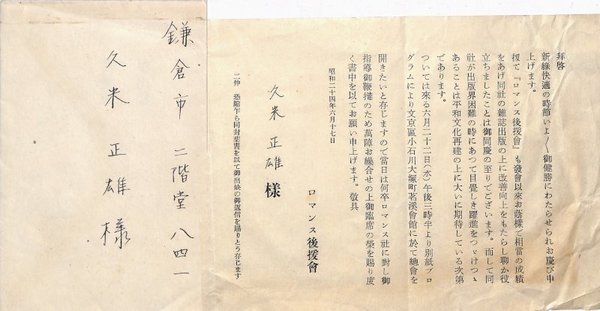 鎌倉市二階堂八四一
久米正雄様
拝啓
新緑快適の時節いよ〳〵御健勝にわたらせられお慶び申
上げます。
扨て『ロマンス後援會』も發會以来お蔭様で相當の成績
をあげ同社の雜誌出版の上に改善向上をもたらし聊か役
立ちましたことは御同慶の至りでございます。而して同
社が出版界困難の時にあつて目覺しき躍進をつゞけつゝ
あることは平和文化再建の上に大いに期待している次第
であります。
ついては来る六月二十二日(水)午後三時半より別紙プロ
グラムにより文京區小石川大塚町茗溪會館に於て總會を
開きたいと存じますので當日は何卒ロマンス社に對し御
指導御鞭撻のため萬障お繰合せの上御臨席の榮を賜り度
く書中を以てお願い申上げます。敬具
昭和二十四年六月十七日
ロマンス後援會
久米正雄様
二伸 恐縮乍ら同封葉書を以て御出缺の御返信を賜りとう存じます